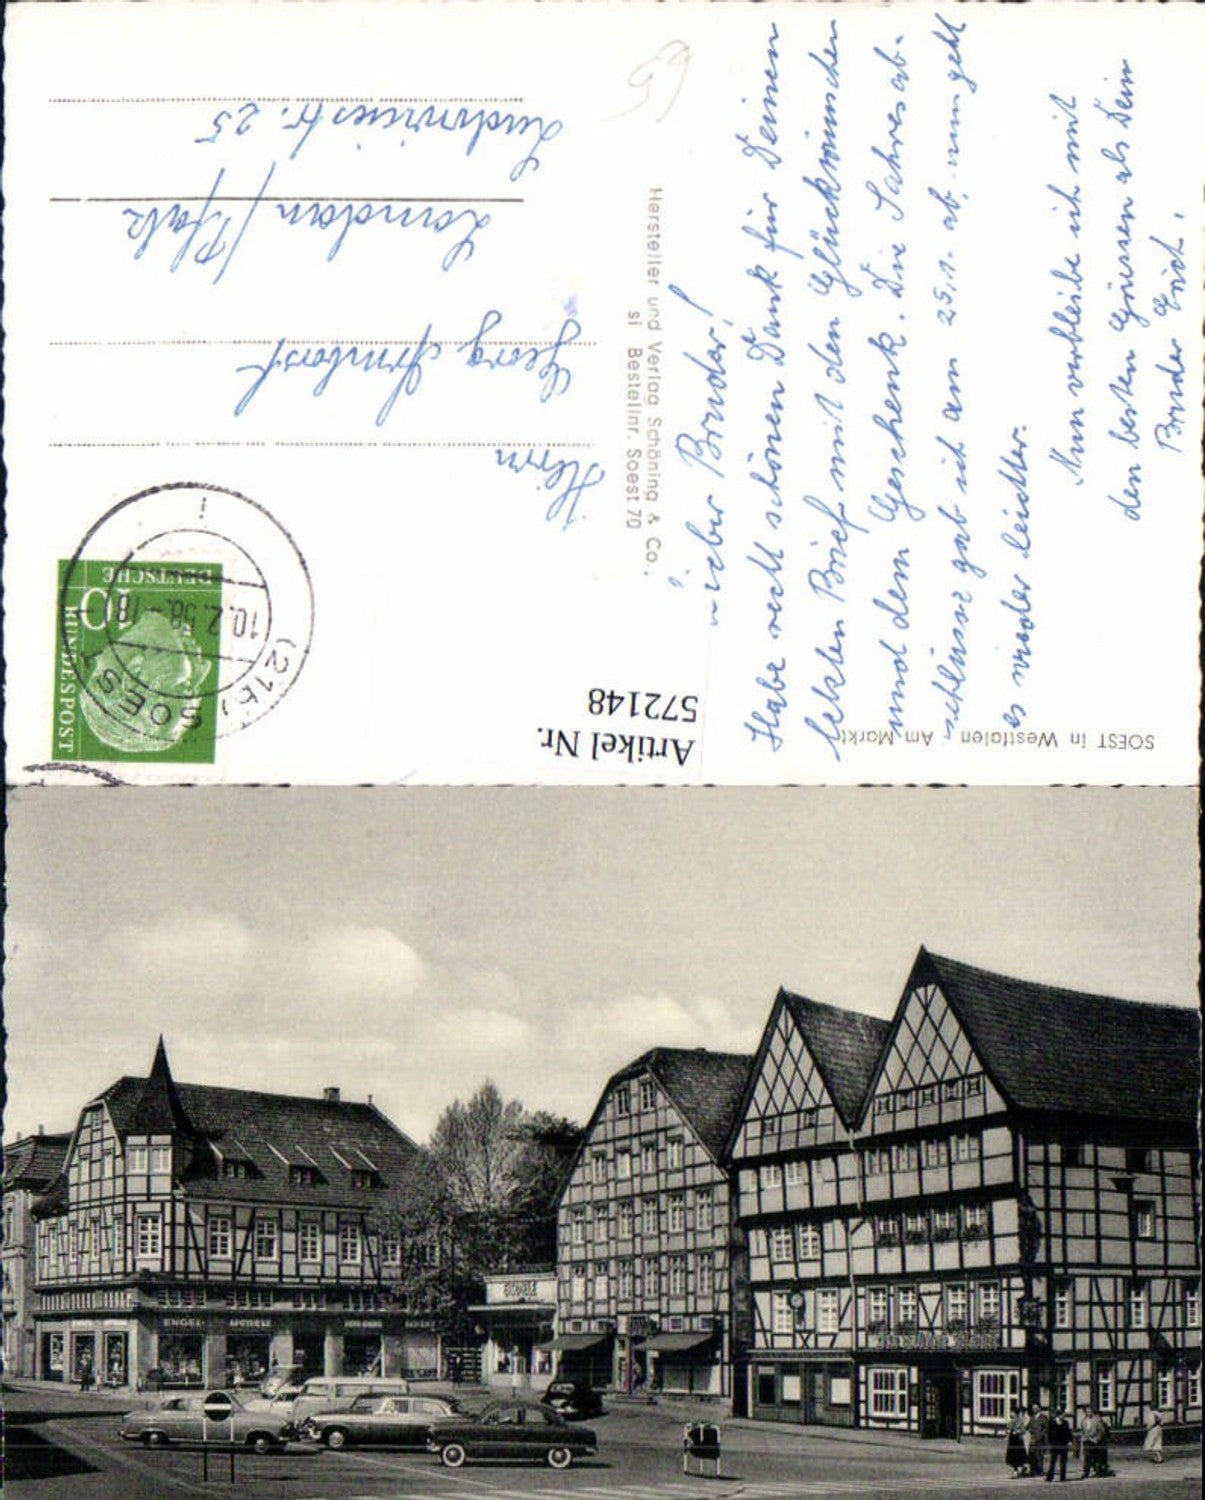 SOEST in Westfalen - Am Markt
Lieber Bruder!
Habe recht schönen Dank für Deinen
letzten Brief mit den Glückwünschen
und dem Geschenk. Die Jahresab-
schlüsse gab ich am 25.1. ab, nun geht
es wieder leichter.
Nun verbleibe ich mit
den besten Grüssen als Dein
Bruder Erich.
Hersteller und Verlag Schöning & Co.,
si Bestellnr. Soest 70
59
DEUTSCHE
BUNDESPOST
10
(21b) SOEST
10.2.58.-18
i
Herrn
Georg Armborst
Landau/Pfalz
Ludowicistr. 25
Artikel Nr.
572148
ENGEL- APOTHEKE